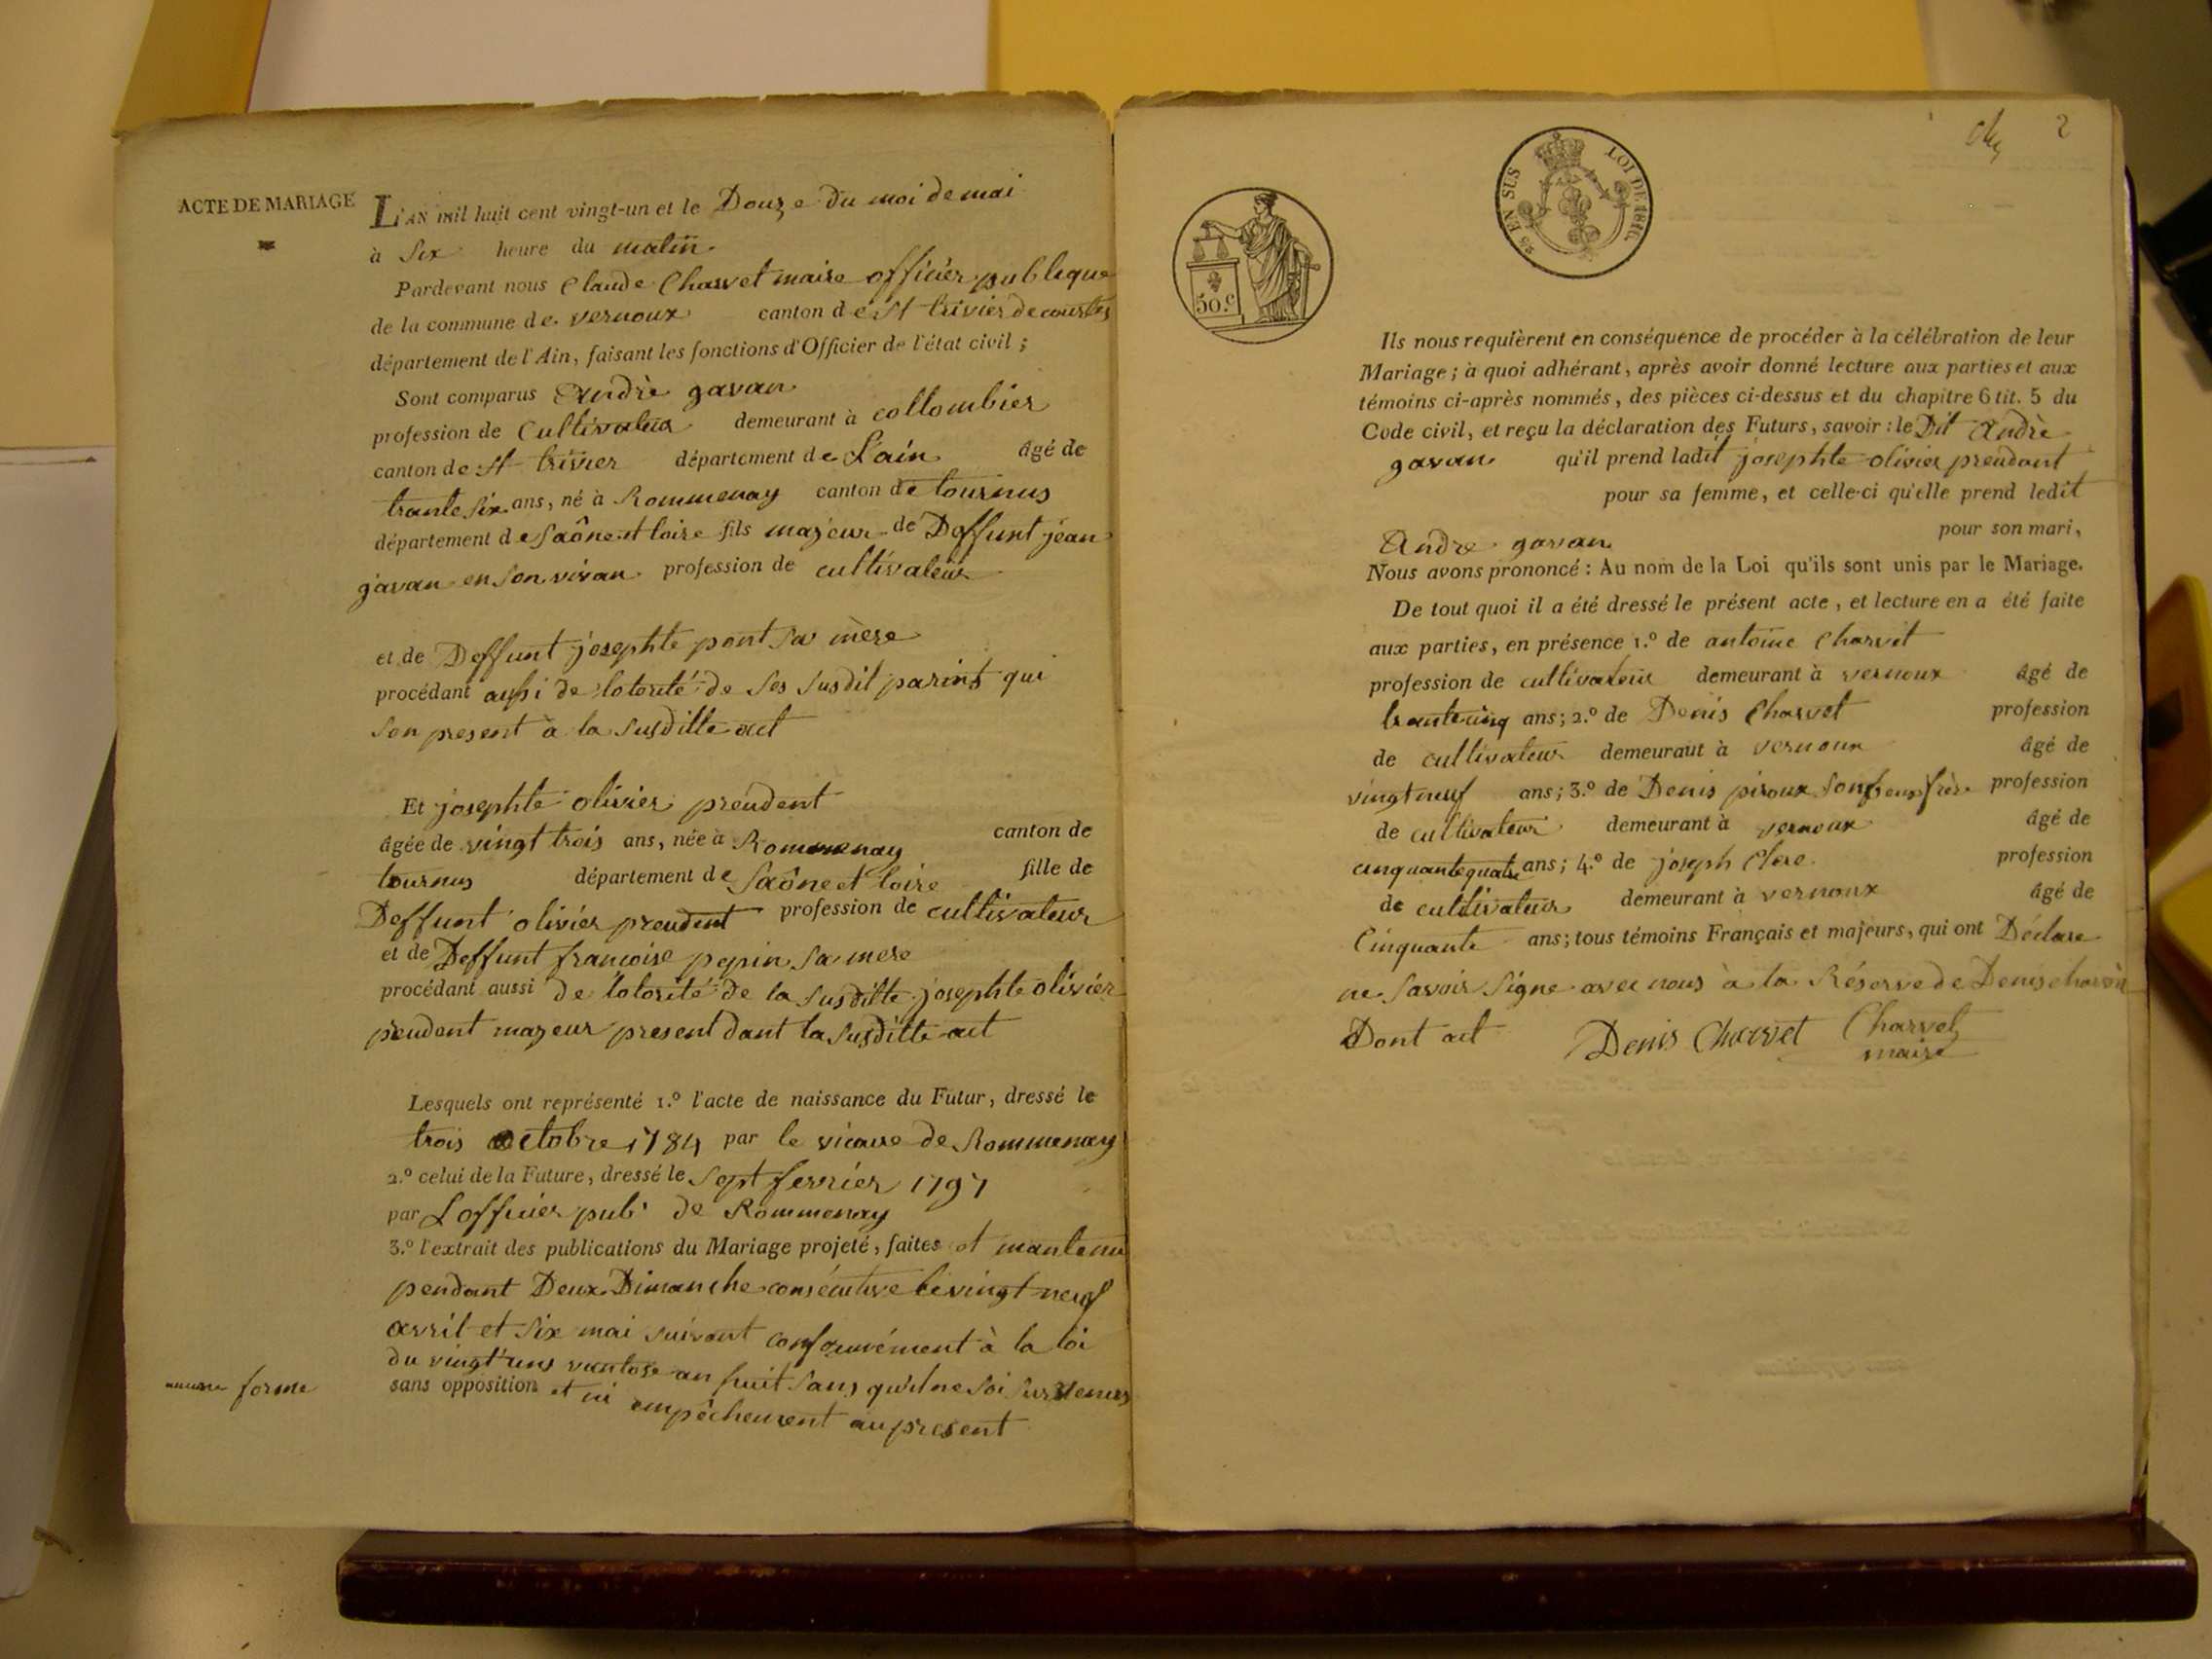 ACTE DE MARIAGE
L'AN mil huit cent vingt-un et le Douze du moi de mai
à Six heure du matin
Pardevant nous Claude Charvet maire officier publique
de la commune de vernoux canton de St trivier de courtes
département de l'Ain, faisant les fonctions d'Officier de l'état civil ;
Sont comparus Andrè gavan
profession de Cultivateur demeurant à collombier
canton de St trivier département de L'ain âgé de
trante six ans, né à Rommenay canton de tournus
département de Saône et loire fils majeur de Deffunt jean
gavan en son vivan profession de cultivateur
et de Deffunt josephte pont sa mère
procédant aussi de lotorité de ses susdit parints qui
son present à la susditte act
Et josephte olivier prendent
âgée de vingt trois ans, née à Rommenay canton de
tournus département de Saône et loire fille de
Deffunt olivier prendent profession de cultivateur
et de Deffunt francoise pepin sa mere
procédant aussi de lotorité de la susditte josephte olivier
pendent majeur present dant la susditte act
Lesquels ont représenté 1.º l'acte de naissance du Futur, dressé le
trois octobre 1784 par le vicaire de Rommenay
2.º celui de la Future, dressé le Sept fevrier 1797
par L'officier pub. de Rommenay
3.º l'extrait des publications du Mariage projeté, faites et mantenu
pendant Deux Dimanche consécutive le vingt neuf
avril et six mai suivant conformément à la loi
du vingt'uns vantose an huit sans qu'il ne soi survenus
forme sans opposition et ni empêchement au present
2
EN SUS LOI DE 1816.
50.c
Ils nous requièrent en conséquence de procéder à la célébration de leur
Mariage ; à quoi adhérant, après avoir donné lecture aux parties et aux
témoins ci-après nommés, des pièces ci-dessus et du chapitre 6 tit. 5 du
Code civil, et reçu la déclaration des Futurs, savoir : le Dit Andrè
gavan qu'il prend ladit josephte olivier prendant
pour sa femme, et celle-ci qu'elle prend ledit
Andre gavan pour son mari,
Nous avons prononcé : Au nom de la Loi qu'ils sont unis par le Mariage.
De tout quoi il a été dressé le présent acte, et lecture en a été faite
aux parties, en présence 1.º de antoine Charvet
profession de cultivateur demeurant à vernoux âgé de
trante cinq ans ; 2.º de Denis Charvet profession
de cultivateur demeurant à vernoux âgé de
vingt neuf ans ; 3.º de Denis piroux son beau frère profession
de cultivateur demeurant à vernoux âgé de
cinquante quatre ans ; 4.º de joseph Clere profession
de cultivateur demeurant à vernoux âgé de
Cinquante ans ; tous témoins Français et majeurs, qui ont Déclare
ne savoir signe avec nous à la Réserve de Denis charvet
Dont act Denis Charvet Charvet
maire